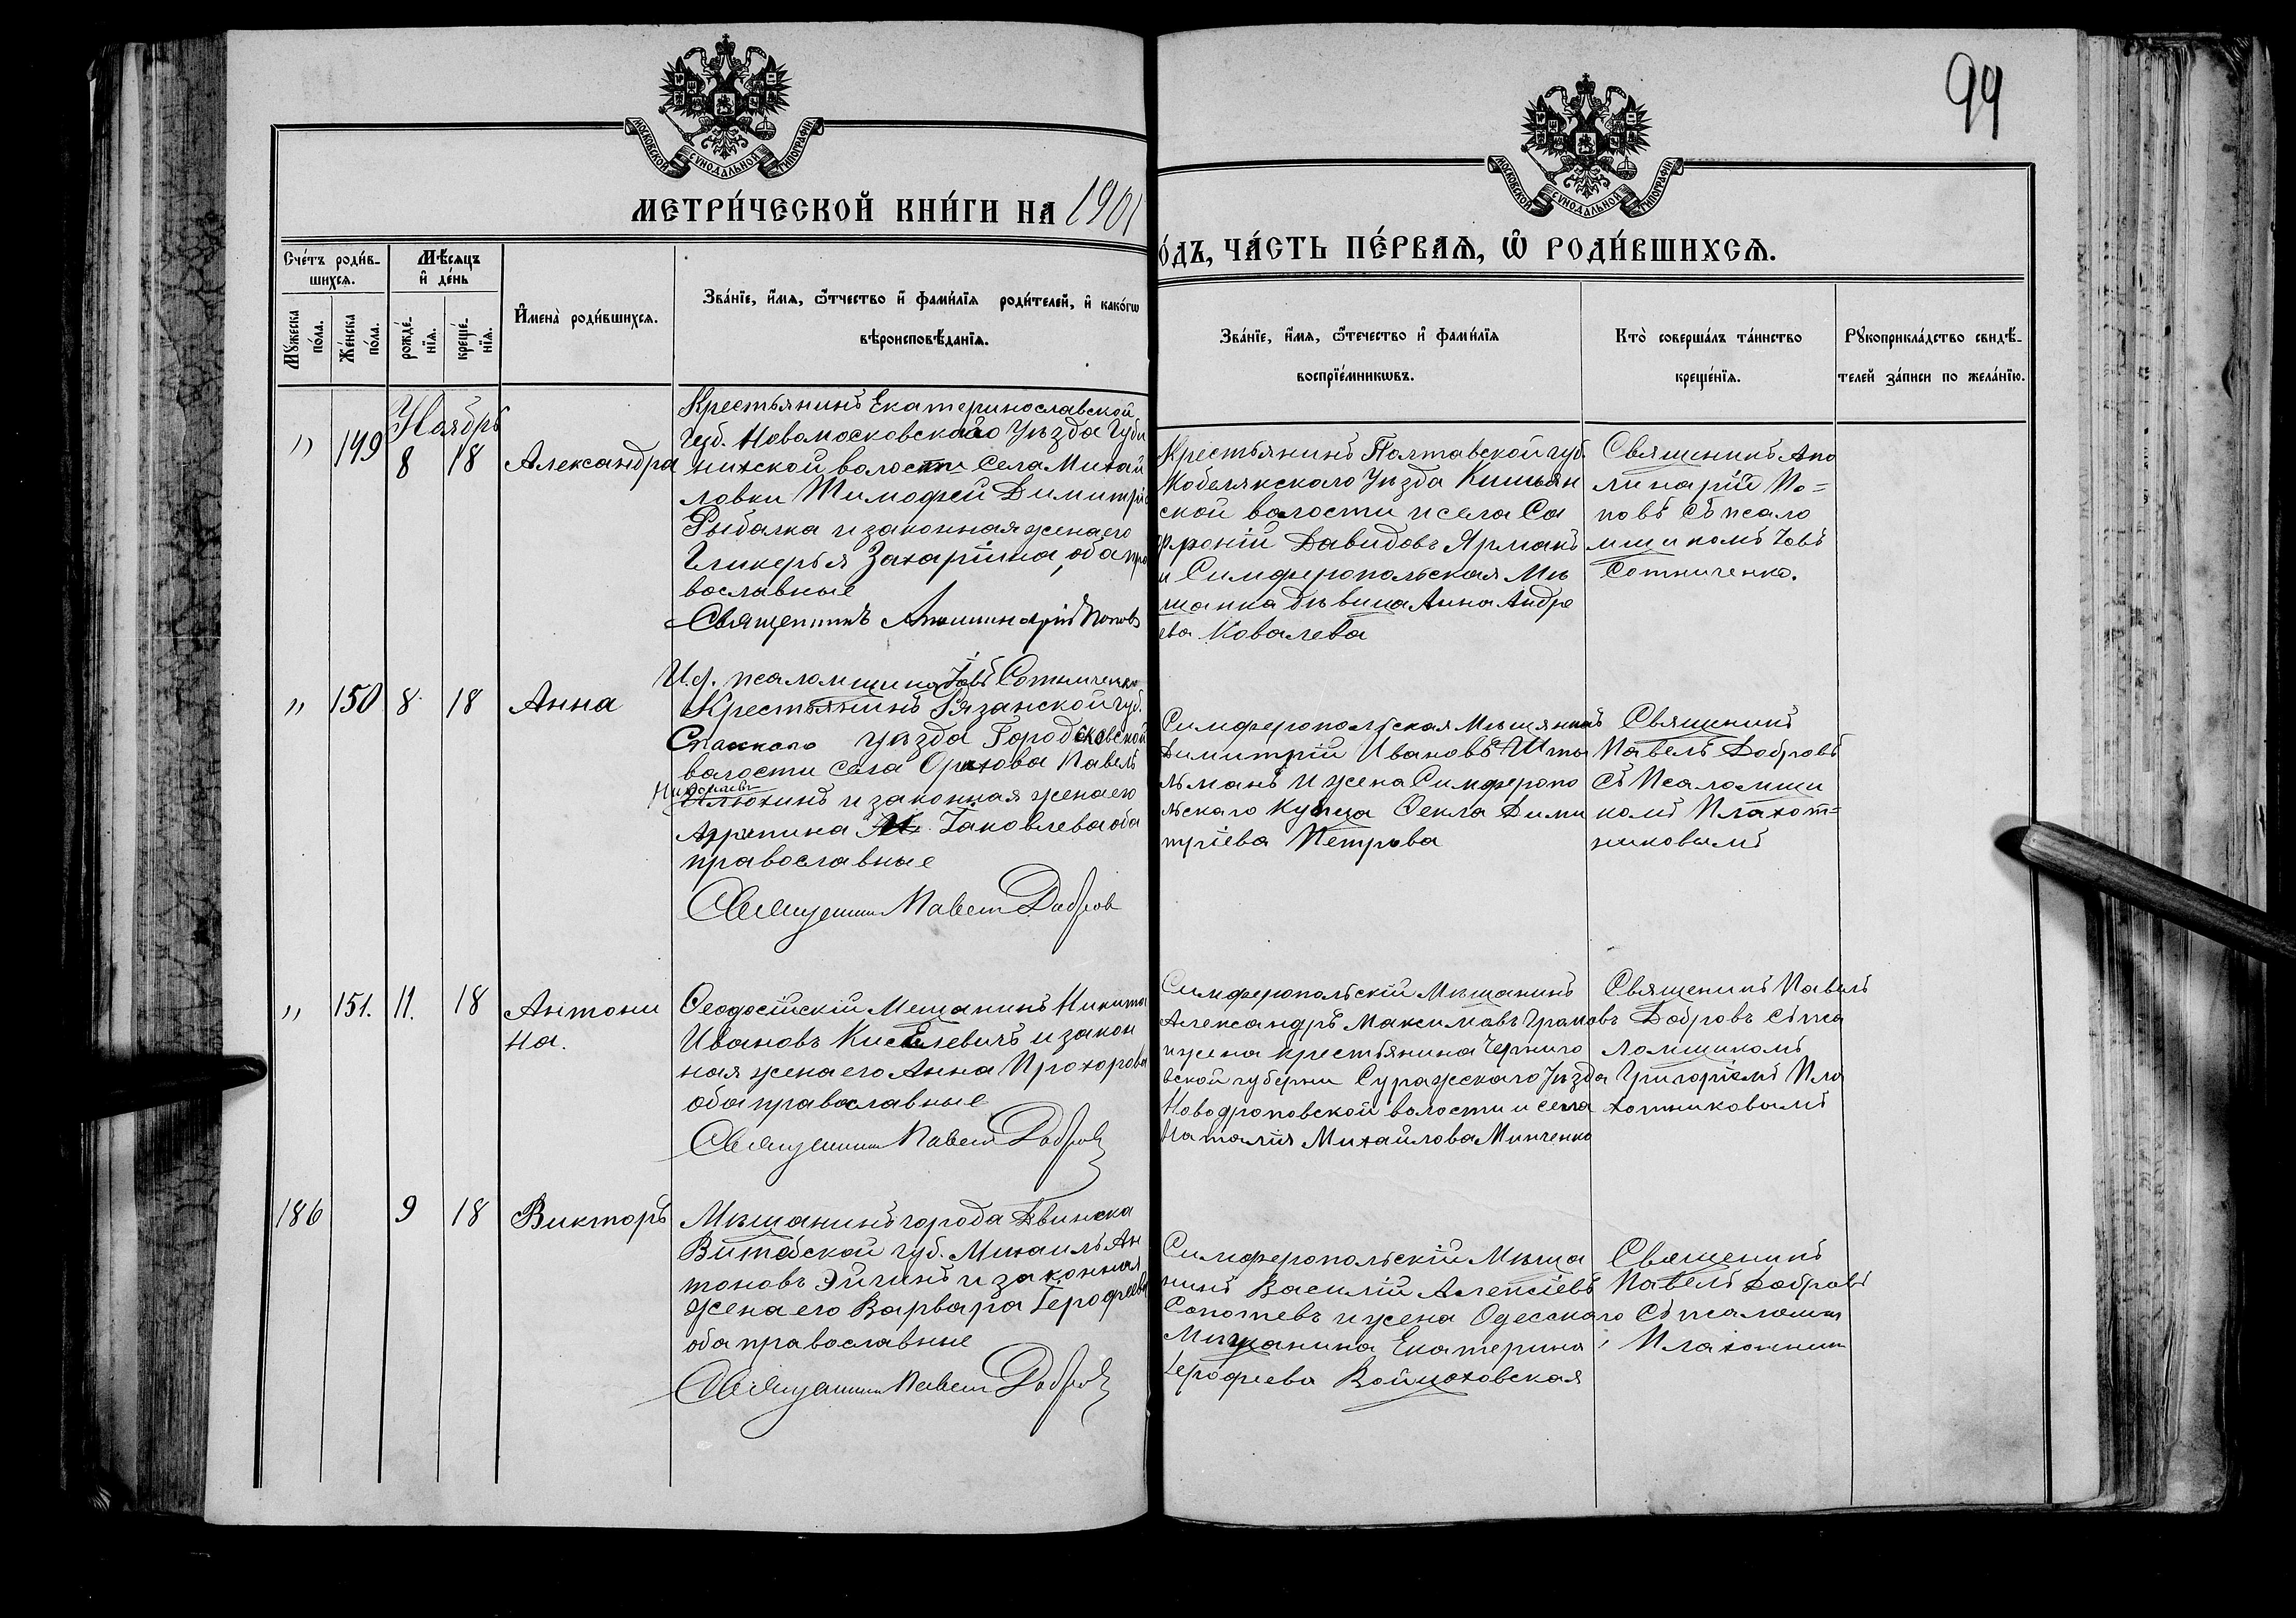 99
МОСКОВСКОЙ СѴНОДАЛЬНОЙ ТИПОГРАФІИ
МОСКОВСКОЙ СѴНОДАЛЬНОЙ ТИПОГРАФІИ
МЕТРИ́ЧЕСКОЙ КНИ́ГИ НА 1901
О́ДЪ, ЧА́СТЬ ПЕ́РВАѦ, Ѿ РОДИ́ВШИХСѦ.
Сче́тъ роди́в-
шихсѧ.
Мꙋ́жеска по́ла.
Же́нска по́ла.
Мѣ́сѧцъ
и҆ де́нь
рожде́-
нїѧ.
креще́-
нїѧ.
И҆мена̀ роди́вшихсѧ.
Зва́нїе, и҆́мѧ, ѻ҆́тчество и҆ фами́лїѧ роди́телей, и҆ како́гѡ
вѣроисповѣ́данїѧ.
Зва́нїе, и҆́мѧ, ѻ҆те́чество и҆ фами́лїѧ
воспрїе́мникѡвъ.
Кто̀ соверша́лъ та́инство
креще́нїѧ.
Рꙋкоприкла́дство свидѣ́-
телей за́писи по жела́нїю.
Ноябрь
" 149 8 18 Александра
Крестьянинъ Екатеринославской
губ. Новомосковскаго Уѣзда Губи
нихской волости села Михай
ловки Тимофей Димитріе
Рыбалка и законная жена его
Гликерья Захаріина, оба пра
вославные
Священникъ Аполинарій Поповъ
И.д. псаломщика Іовъ Сотниченко
Крестьянинъ Полтавской губ.
Кобелякскаго Уѣзда Кишьян
ской волости и села Со
фроній Давидовъ Ярмакъ
и Симферопольская Мѣ
щанка дѣвица Анна Андре
ева Ковалева
Священикъ Апо
линарій По=
повъ съ псало
мщикомъ Іовъ
Сотниченко.
" 150 8 18 Анна
Крестьянинъ Рязанской губ.
Спасскаго уѣзда Городсковской
волости села Орехова Павелъ
Николаевъ
Илюхинъ и законная жена его
Агрипина Яковлева оба
православные
Священникъ Павелъ Добровъ
Симферопольская Мѣщянинъ
Димитрій Ивановъ Шты
льманъ и жена Симферопо
льскаго Купца Ѳекла Дими
тріева Петрова
Священикъ
Павелъ Добровъ
съ Псаломщи
комъ Плахот=
никовымъ
" 151. 11. 18 Антони
на.
Ѳеодосійскій Мещанинъ Никита
Ивановъ Киселевичъ и закон
ная жена его Анна Прохорова
оба православные
Священникъ Павелъ Добровъ
Симферопольскій Мѣщанинъ
Александръ Максимовъ Громовъ
и жена крестьянина Черниго
вской губерни Суражскаго Уѣзда
Новодроповской волости и села
Наталія Михайлова Минченко
Священикъ Павелъ
Добровъ съ пса
ломщикомъ
Григоріемъ Пла
хотниковымъ
186 9 18 Викторъ
Мѣщанинъ города Двинска
Витебской губ. Михаилъ Ан
тоновъ Эйчинъ и законная
жена его Варвара Герофеева
оба православные
Священникъ Павелъ Добровъ
Симферопольскій Мѣща
нинъ Василій Алексіевъ
Сапотевъ и жена Одесскаго
Мищанина Екатерина
Герофеева Войцоховская
Священикъ
Павелъ Добровъ
съ псаломщ